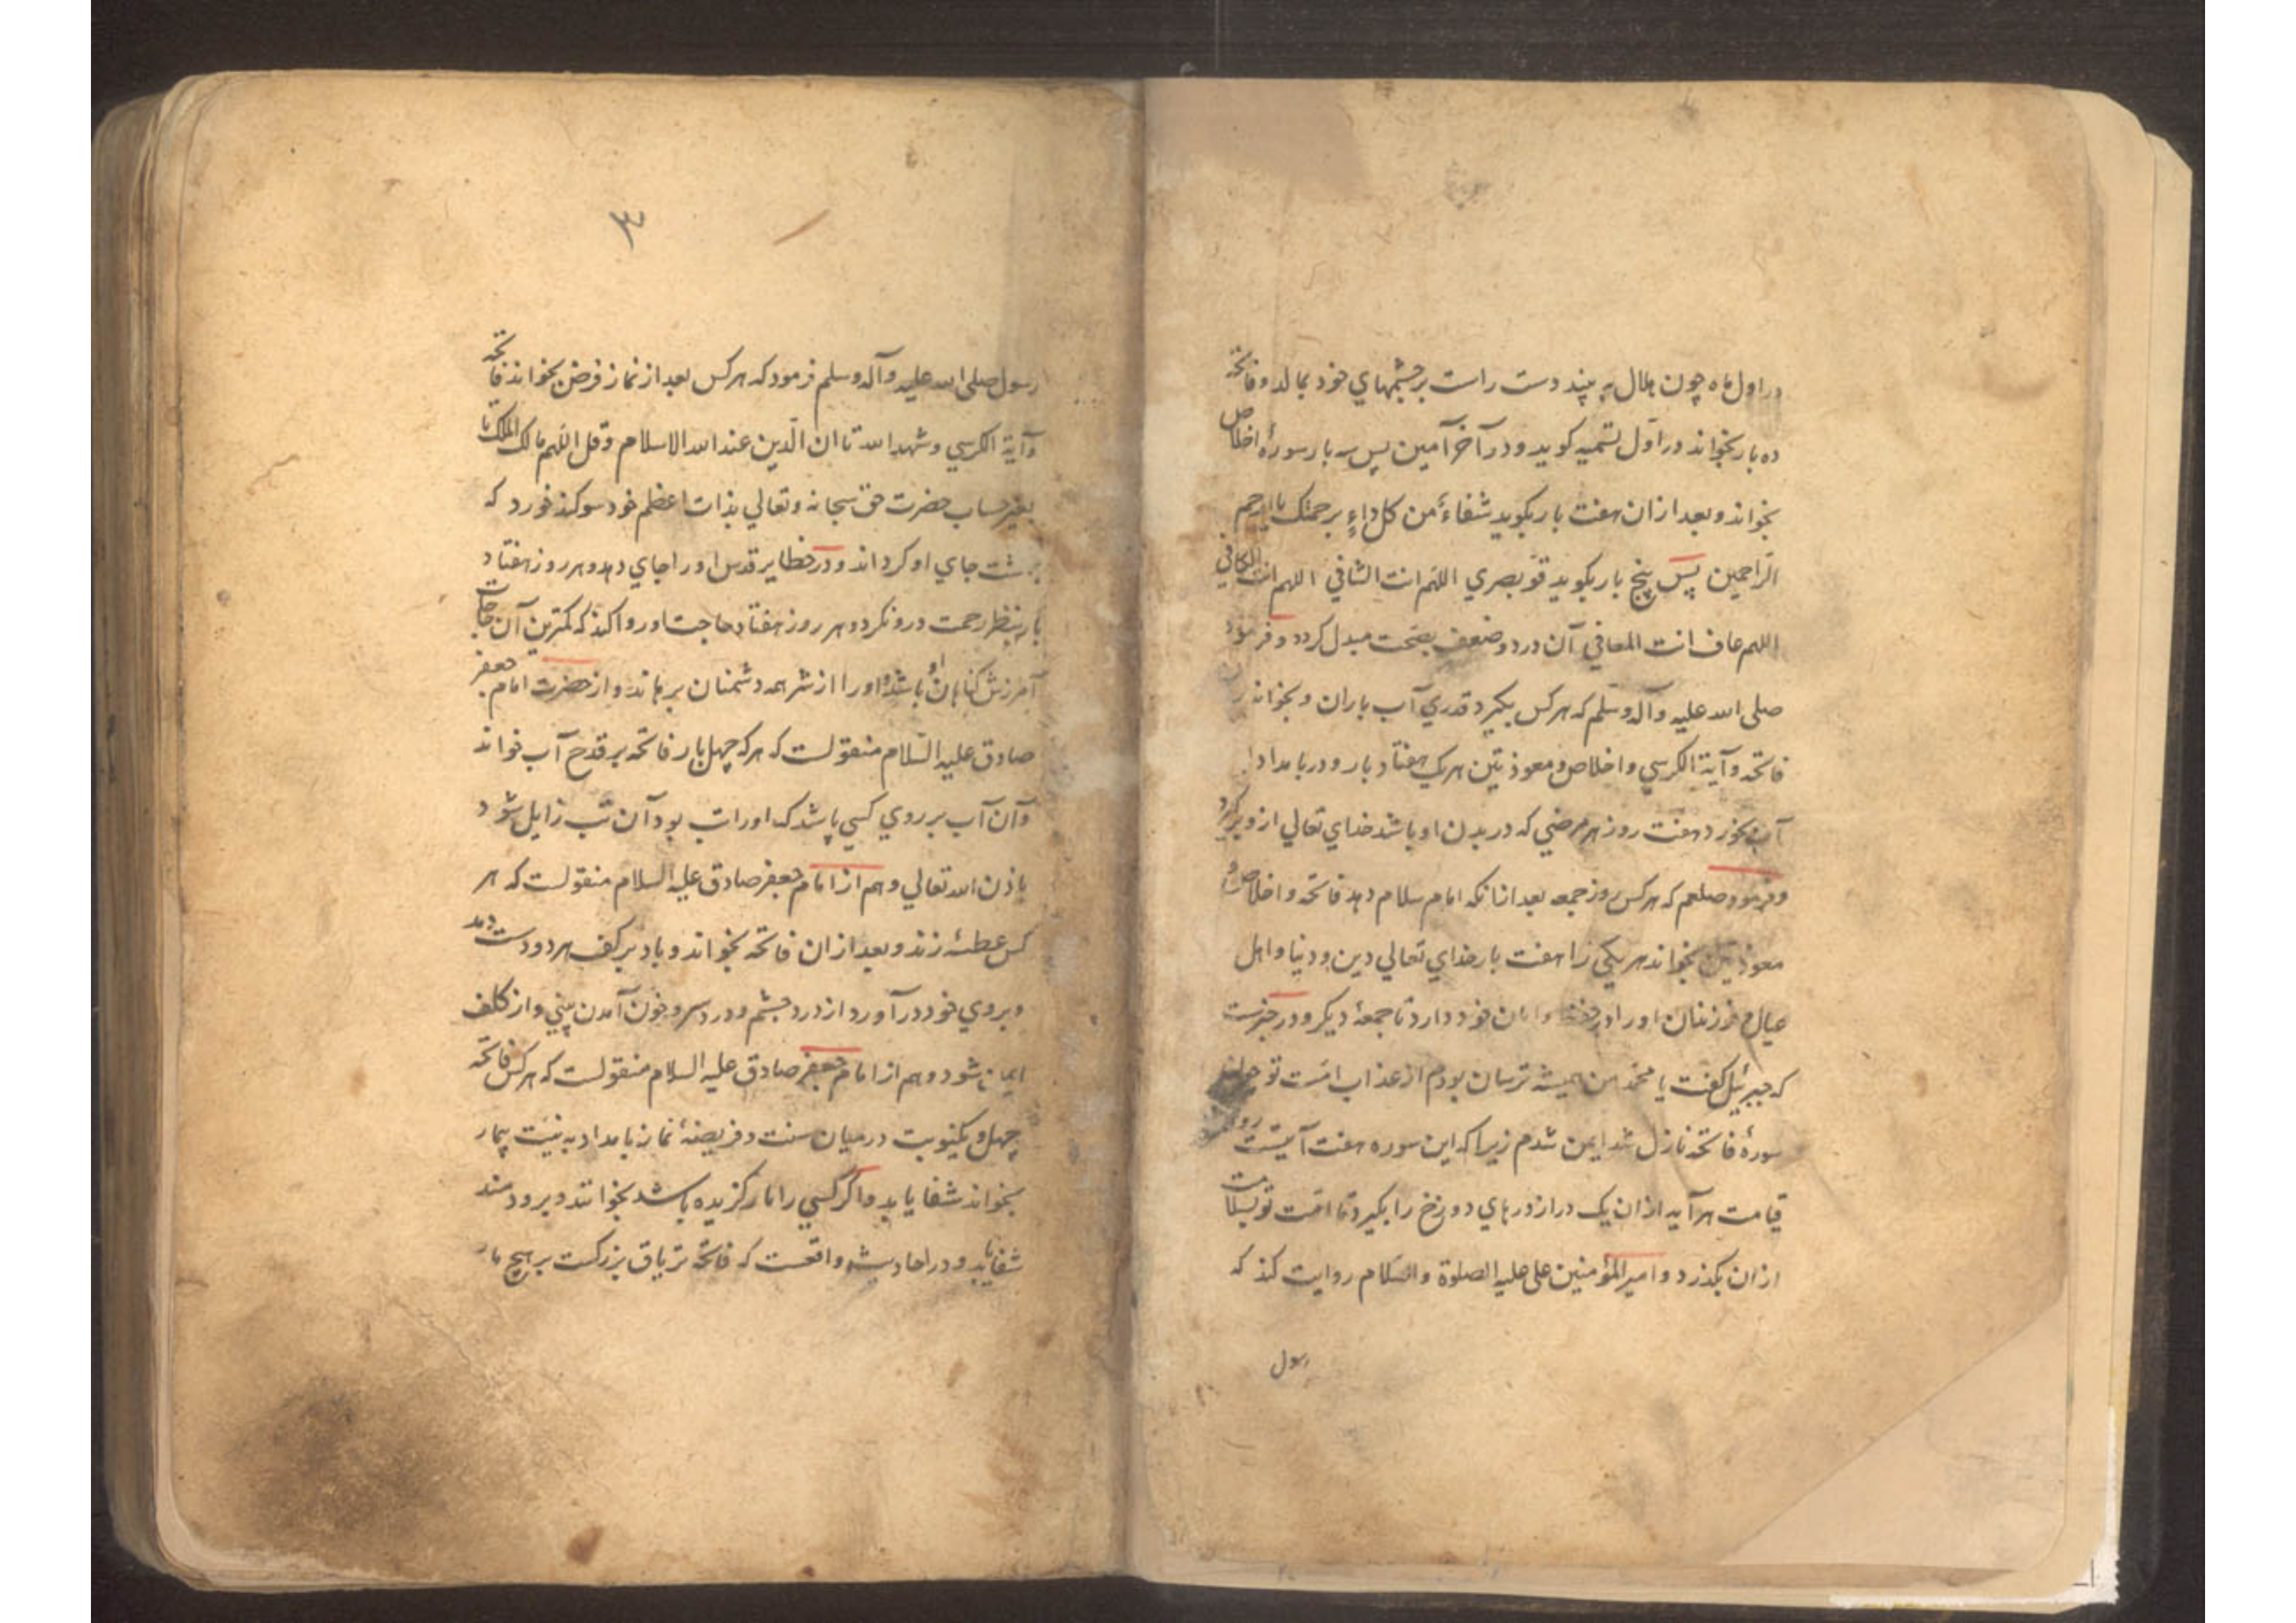 در اول ماه چون هلال به بیند دست راست بر چشمهای خود بمالد و فاتحه
ده بار بخواند در اول تسمیه کوید و در آخر آمین پس سه بار سورهٔ اخلاص
بخواند و بعد از ان هفت بار بکوید شفاءً من کل داءٍ برحمتک یا ارحم
الراحمین پس پنج بار بکوید قو بصری اللهم انت الشافی اللهم انت الکافی
اللهم عاف انت المعافی آن درد و ضعف بصحت مبدل کردد و فرمود
صلی الله علیه وآله وسلم که هر کس بکیرد قدری آب باران و بخواند
فاتحه و آیة الکرسی و اخلاص و معوذتین هر یک هفتاد بار و در بامداد
آب بخورد هفت روز هر مرضی که در بدن او باشد خدای تعالی ازو ببرد
و فرمود صلعم که هر کس روز جمعه بعد از انکه امام سلام دهد فاتحه و اخلاص و
معوذتین بخواند هر یکی را هفت بار خدای تعالی دین و دنیا و اهل
عیال و فرزندان او را در حفظ و امان خود دارد تا جمعهٔ دیکر و در خبرست
که جبرئیل کفت یا محمد من همیشه ترسان بودم از عذاب امت تو چون
سورهٔ فاتحه نازل شد ایمن شدم زیرا که این سوره هفت آیتست روز
قیامت هر آیه از ان یک در از درهای دوزخ را بکیرد تا امت تو بسلامت
از ان بکذرد و امیر المؤمنین علی علیه الصلوة والسلام روایت کند که
رسول
۳
رسول صلی الله علیه وآله وسلم فرمود که هر کس بعد از نماز فرض بخواند فاتحه
و آیة الکرسی و شهد الله تا ان الدین عند الله الاسلام و قل اللهم مالک الملک تا
بغیر حساب حضرت حق سبحانه وتعالی بذات اعظم خود سوکند خورد که
بهشت جای او کرداند و در خطایر قدس او را جای دهد و هر روز هفتاد
بار بنظر رحمت درو نکرد و هر روز هفتاد حاجت او روا کند که کمترین آن حاجات
آمرزش کناهان او باشد و او را از شر همه دشمنان برهاند و از حضرت امام جعفر
صادق علیه السلام منقولست که هر که چهل بار فاتحه بر قدح آب خواند
و آن آب بر روی کسی پاشد که او را تب بود آن تب زایل شود
باذن الله تعالی و هم از امام جعفر صادق علیه السلام منقولست که هر
کس عطسه زند و بعد از ان فاتحه بخواند و باد بر کف هر دو دست دمد
و بروی خود در آورد از درد چشم و درد سر و خون آمدن بینی و از کلف
ایمن شود و هم از امام جعفر صادق علیه السلام منقولست که هر کس فاتحه
چهل و یکنوبت در میان سنت و فریضهٔ نماز بامداد به نیت بیمار
بخواند شفا یابد و اکر کسی را مار کزیده باشد بخوانند و برو دمند
شفا یابد و در احادیث واقعست که فاتحه تریاق بزرکست بر هیچ مار